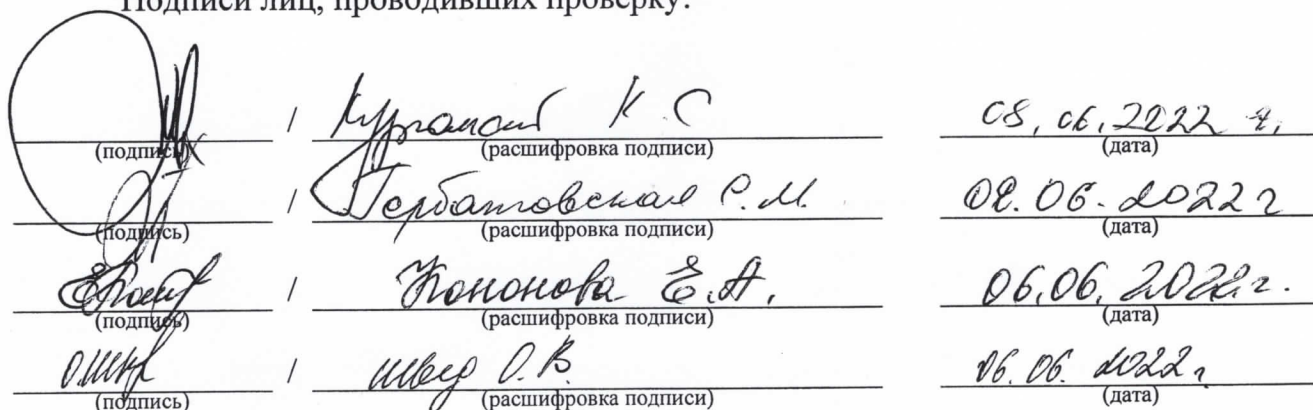 Подписи лиц, проводивших проверку:
/ К. С 08.06.2022 г.
(подпись) (расшифровка подписи) (дата)
/ С.М. 06.2022 г
(подпись) (расшифровка подписи) (дата)
/ Кононова Е.А. 06.06.2022 г.
(подпись) (расшифровка подписи) (дата)
/ швед О.В. 06.06.2022 г
(подпись) (расшифровка подписи) (дата)